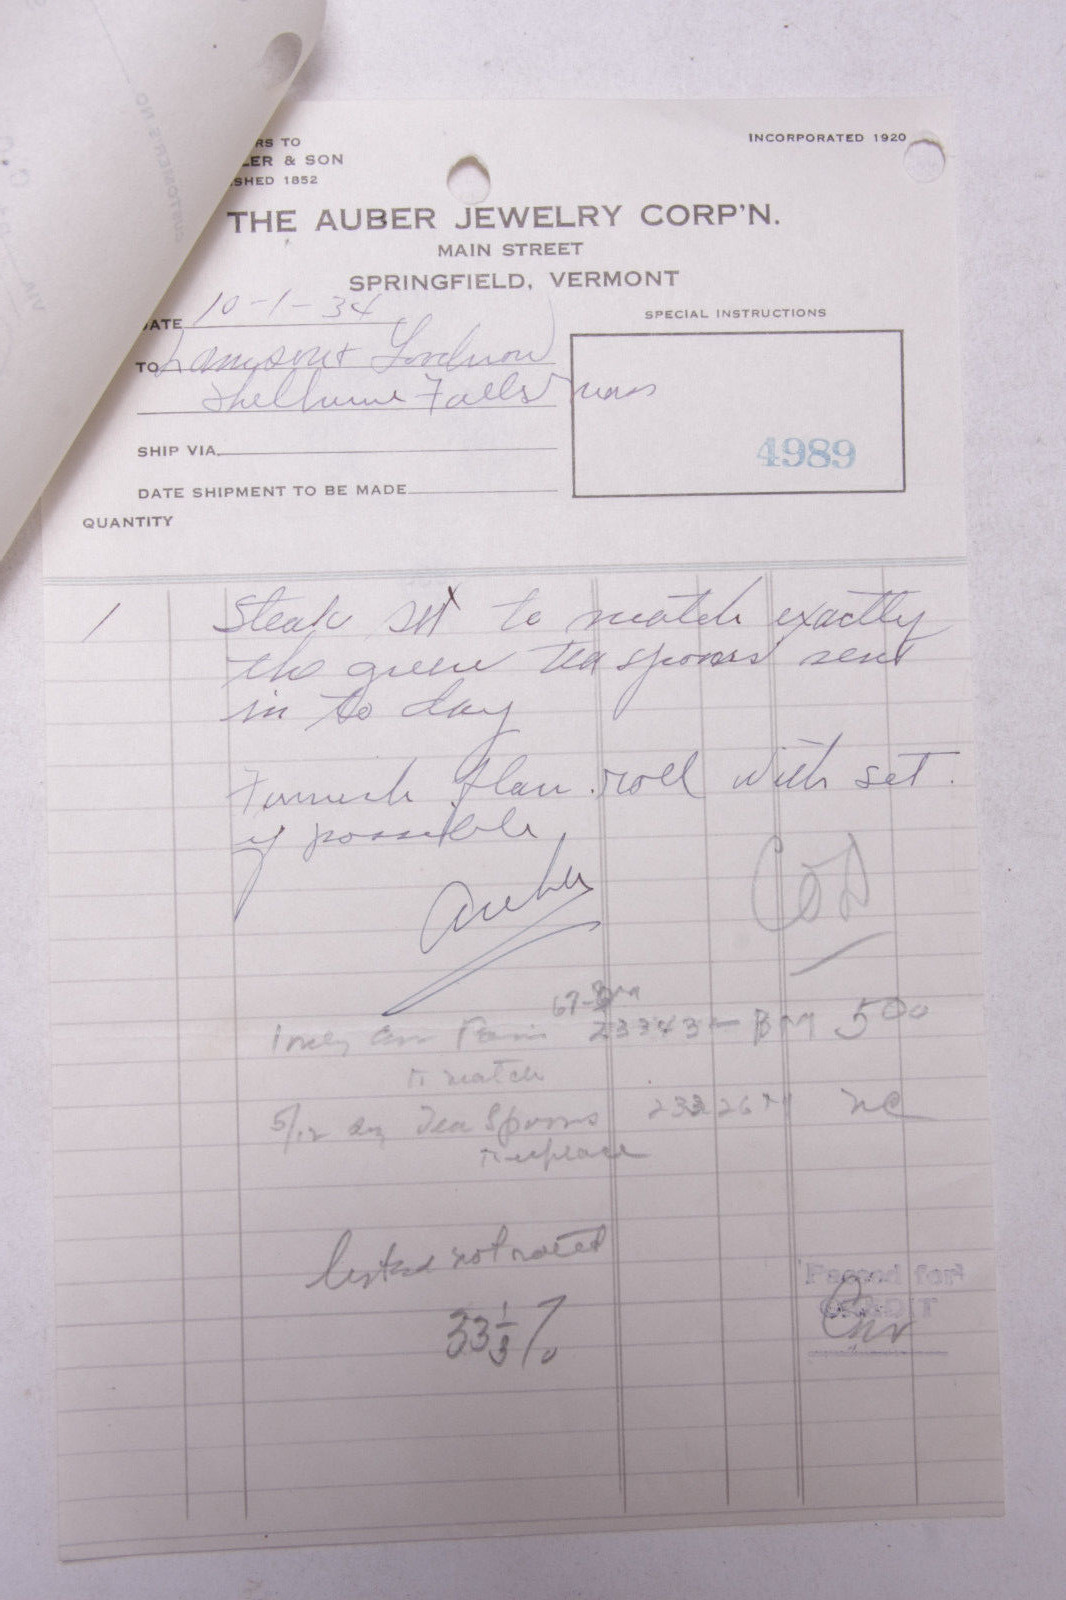 RS TO
LER & SON
SHED 1852
INCORPORATED 1920
THE AUBER JEWELRY CORP'N.
MAIN STREET
SPRINGFIELD, VERMONT
DATE 10-1-34
SPECIAL INSTRUCTIONS
TO Lamson & Goodnow
Shelburne Falls Mass
SHIP VIA
4989
DATE SHIPMENT TO BE MADE
QUANTITY
1 Steak set to match exactly
the green tea spoons sent
in to day
Furnish flan. roll with set.
if possible
Auber
COD
67-
1 only Pair 23343 - 500
to match
5/12 dz Tea Spoons 23326 NC
to replace
listed not rated
Passed for
CREDIT
33 1/3 %